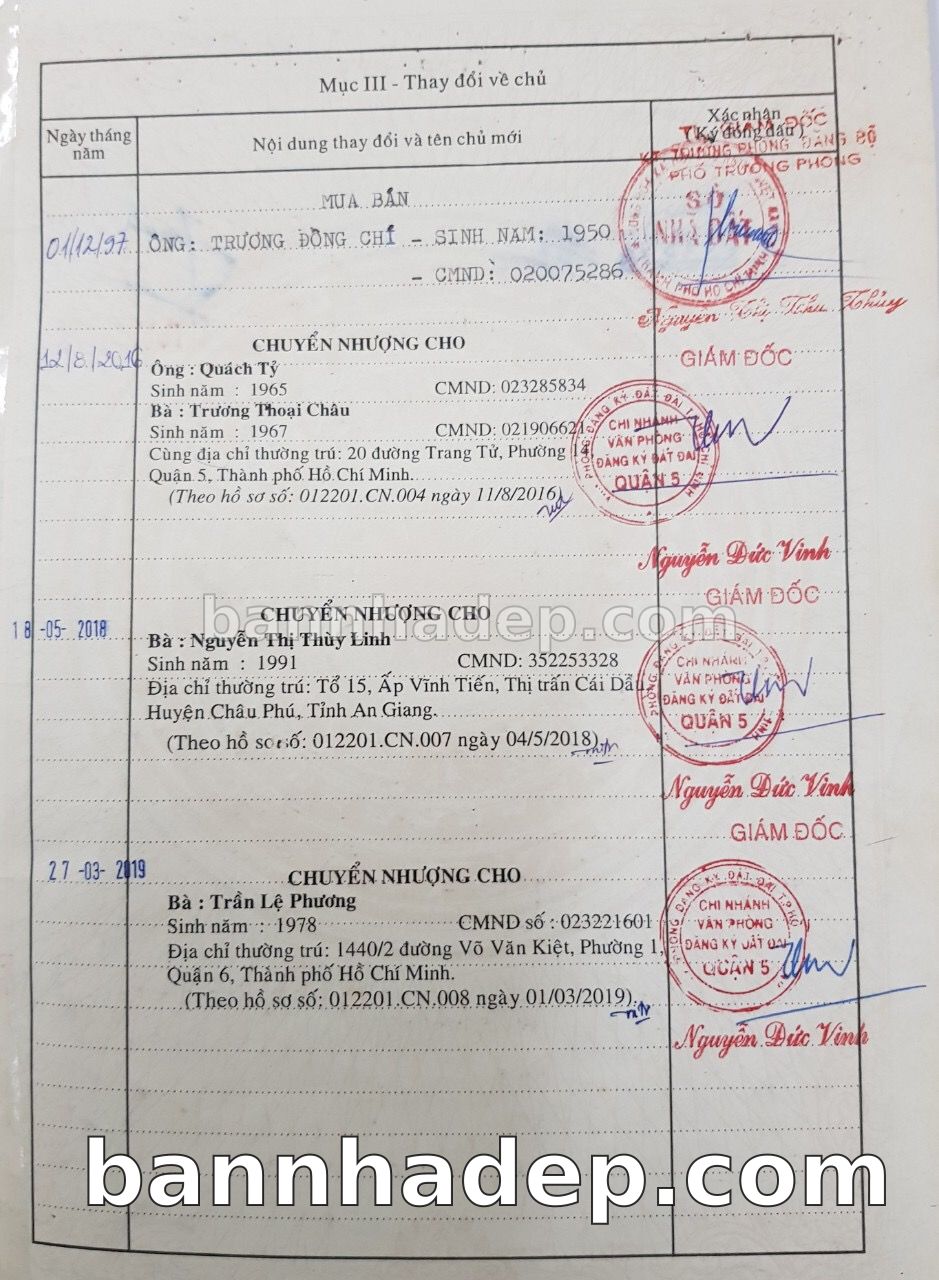 Mục III - Thay đổi về chủ
Ngày tháng năm
Nội dung thay đổi và tên chủ mới
Xác nhận
(Ký đóng dấu)
GIÁM ĐỐC
KT. TRƯỞNG PHÒNG ĐĂNG BỘ
PHÓ TRƯỞNG PHÒNG
MUA BÁN
01/12/97
ÔNG: TRƯƠNG ĐỒNG CHÍ - SINH NĂM: 1950
- CMND: 020075286
SỞ
NHÀ ĐẤT
THÀNH PHỐ HỒ CHÍ MINH
Nguyễn Thị Thu Thủy
12/8/2016
CHUYỂN NHƯỢNG CHO
Ông : Quách Tỷ
Sinh năm : 1965 CMND: 023285834
Bà : Trương Thoại Châu
Sinh năm : 1967 CMND: 021906621
Cùng địa chỉ thường trú: 20 đường Trang Tử, Phường 14,
Quận 5, Thành phố Hồ Chí Minh.
(Theo hồ sơ số: 012201.CN.004 ngày 11/8/2016)
GIÁM ĐỐC
CHI NHÁNH
VĂN PHÒNG
ĐĂNG KÝ ĐẤT ĐAI
QUẬN 5
Nguyễn Đức Vinh
bannhadep.com
18 -05- 2018
CHUYỂN NHƯỢNG CHO
Bà : Nguyễn Thị Thùy Linh
Sinh năm : 1991 CMND: 352253328
Địa chỉ thường trú: Tổ 15, Ấp Vĩnh Tiến, Thị trấn Cái Dầu,
Huyện Châu Phú, Tỉnh An Giang.
(Theo hồ sơ số: 012201.CN.007 ngày 04/5/2018).
GIÁM ĐỐC
CHI NHÁNH
VĂN PHÒNG
ĐĂNG KÝ ĐẤT ĐAI
QUẬN 5
Nguyễn Đức Vinh
27 -03- 2019
CHUYỂN NHƯỢNG CHO
Bà : Trần Lệ Phương
Sinh năm : 1978 CMND số : 023221601
Địa chỉ thường trú: 1440/2 đường Võ Văn Kiệt, Phường 1,
Quận 6, Thành phố Hồ Chí Minh.
(Theo hồ sơ số: 012201.CN.008 ngày 01/03/2019).
GIÁM ĐỐC
CHI NHÁNH
VĂN PHÒNG
ĐĂNG KÝ ĐẤT ĐAI
QUẬN 5
Nguyễn Đức Vinh
bannhadep.com